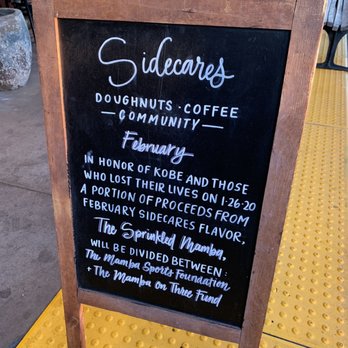 Sidecares
DOUGHNUTS · COFFEE
— COMMUNITY —
February
IN HONOR OF KOBE AND THOSE
WHO LOST THEIR LIVES ON 1·26·20
A PORTION OF PROCEEDS FROM
FEBRUARY SIDECARES FLAVOR,
The Sprinkled Mamba,
WILL BE DIVIDED BETWEEN:
The Mamba Sports Foundation
+ The Mamba on Three Fund